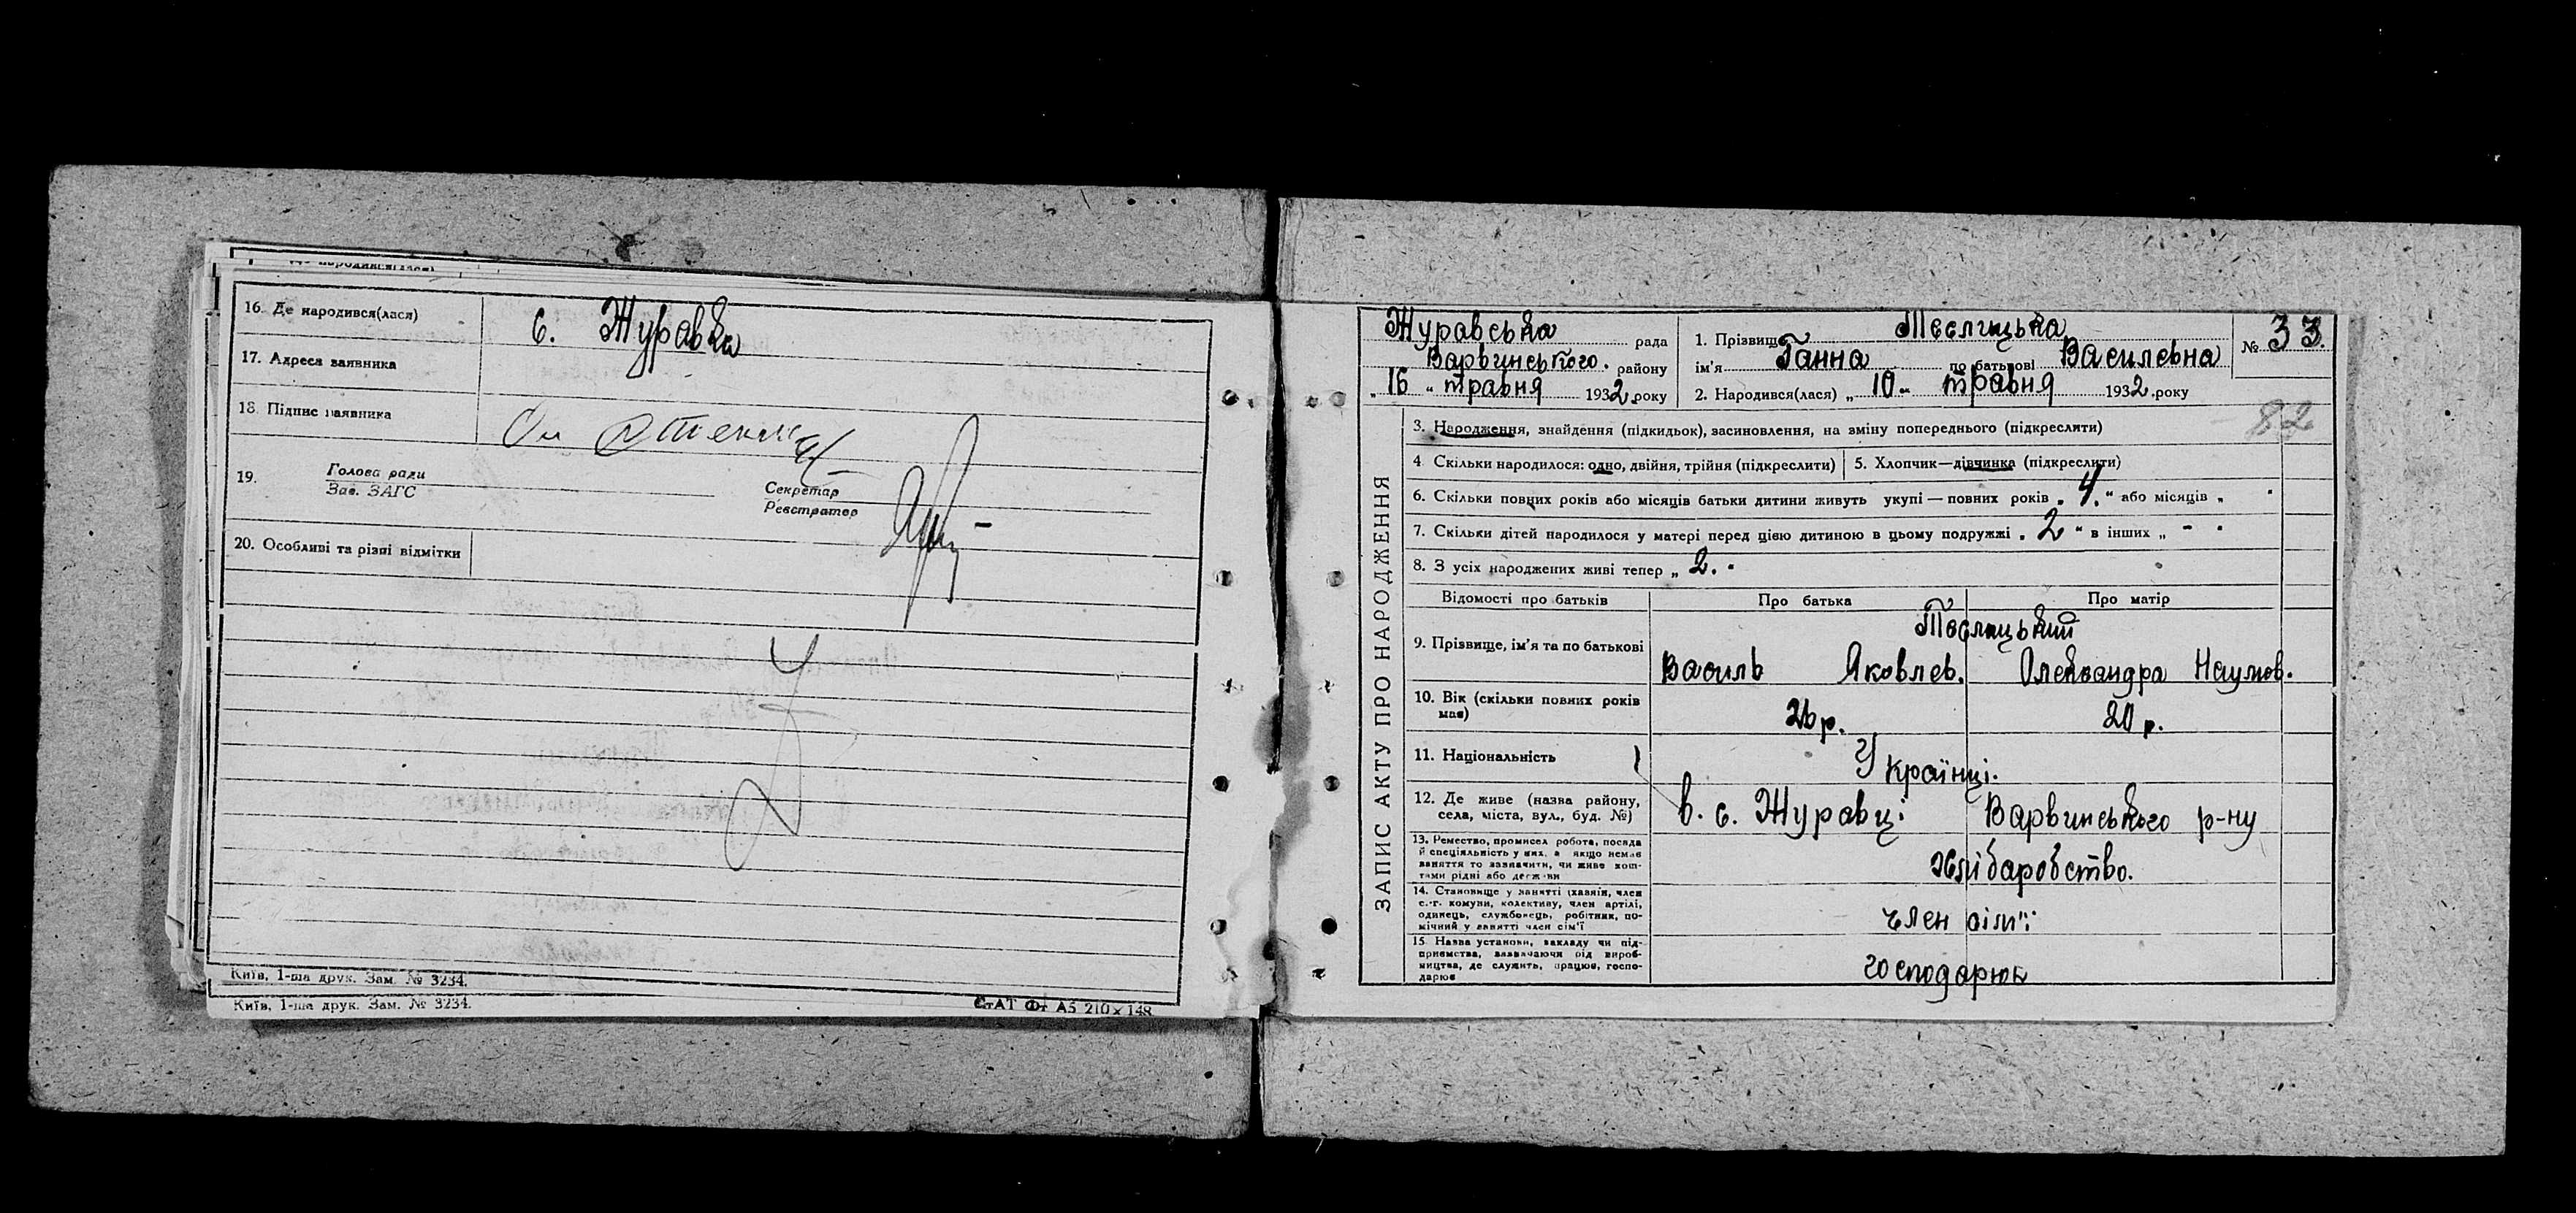 16. Де народився(лася) с. Журавка
17. Адреса заявника
18. Підпис заявника
19. Голова ради
Зав. ЗАГС
Секретар
Реєстратор
20. Особливі та різні відмітки
Київ, 1-ша друк. Зам. № 3234.
Київ, 1-ша друк. Зам. № 3234.
СтАТ Фт А5 210×148
ЗАПИС АКТУ ПРО НАРОДЖЕННЯ
Журавська рада
Варвинського. району
„16 „ травня 1932 року
1. Прізвище Теслицька
ім'я Ганна по батькові Василевна
2. Народився(лася) „ 10 „ травня 1932 року
№ 33.
82
3. Народження, знайдення (підкидьок), засиновлення, на зміну попереднього (підкреслити)
4. Скільки народилося: одно, двійня, трійня (підкреслити)
5. Хлопчик—дівчинка (підкреслити)
6. Скільки повних років або місяців батьки дитини живуть укупі — повних років „ 4. " або місяців „
7. Скільки дітей народилося у матері перед цією дитиною в цьому подружжі „ 2 " в інших „ - "
8. З усіх народжених живі тепер „ 2. "
Відомості про батьків
Про батька
Про матір
9. Прізвище, ім'я та по батькові
Теслицький
Василь Яковлев. Олександра Наумов.
10. Вік (скільки повних років
має)
26 р. 20 р.
11. Національність Українці.
12. Де живе (назва району,
села, міста, вул., буд. №)
в. с. Журавці Варвинського р-ну
13. Ремество, промисел робота, посада
й спеціяльність у них, а якщо немає
заняття то зазначити, чи живе кош-
тами рідні або держави
Хлібаробство.
14. Становище у занятті (хазяїн, член
с.-г. комуни, колективу, член артілі,
одинець, службовець, робітник, по-
мічний у занятті член сім'ї
член сім'ї
15. Назва установи, закладу чи під-
приємства, зазначаючи рід вироб-
ництва, де служить, працює, госпо-
дарює
господарюк